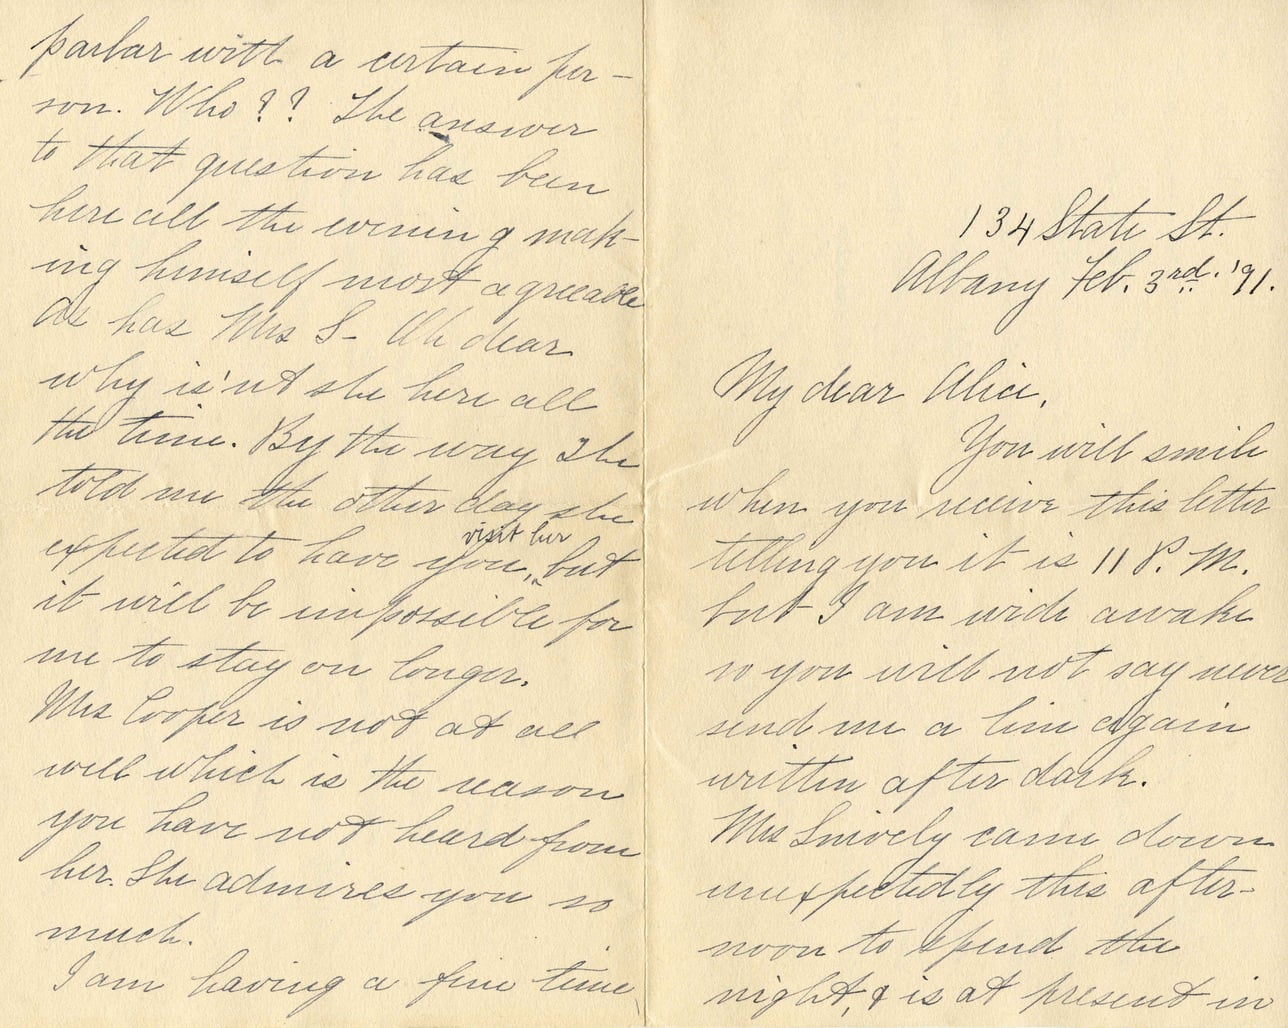 134 State St.
Albany Feb. 3rd. '91.
My dear Alice,
You will smile
when you receive this letter
telling you it is 11 P. M.
but I am wide awake
so you will not say never
send me a line again
written after dark.
Mrs Snively came down
unexpectedly this after-
noon to spend the
night, & is at present in
parlar with a certain per-
son. Who?? The answer
to that question has been
here all the evening mak-
ing himself most agreeable
as has Mrs S- Oh dear
why is'nt she here all
the time. By the way She
told me the other day she
expected to have you, visit her but
it will be impossible for
me to stay on longer.
Mrs Cooper is not at all
well which is the reason
you have not heard from
her. She admires you so
much.
I am having a fine time